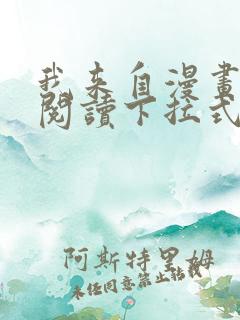 我來自漫畫
閱讀下拉式
阿斯特里姆
未经同意禁止转载